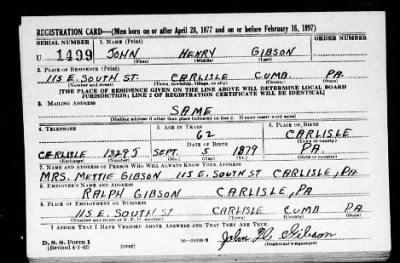 REGISTRATION CARD—(Men born on or after April 28, 1877 and on or before February 16, 1897)
SERIAL NUMBER 1. NAME (Print) ORDER NUMBER
U 1499 JOHN HENRY GIBSON
(First) (Middle) (Last)
2. PLACE OF RESIDENCE (Print)
115 E. SOUTH ST. CARLISLE CUMB. PA.
(Number and street) (Town, township, village, or city) (County) (State)
[THE PLACE OF RESIDENCE GIVEN ON THE LINE ABOVE WILL DETERMINE LOCAL BOARD
JURISDICTION; LINE 2 OF REGISTRATION CERTIFICATE WILL BE IDENTICAL]
3. MAILING ADDRESS
SAME
[Mailing address if other than place indicated on line 2. If same insert word same]
4. TELEPHONE 5. AGE IN YEARS 6. PLACE OF BIRTH
62 CARLISLE
DATE OF BIRTH (Town or county)
CARLISLE 1329 J SEPT. 5 1879 PA.
(Exchange) (Number) (Mo.) (Day) (Yr.) (State or country)
7. NAME AND ADDRESS OF PERSON WHO WILL ALWAYS KNOW YOUR ADDRESS
MRS. METTIE GIBSON 115 E. SOUTH ST CARLISLE, PA.
8. EMPLOYER'S NAME AND ADDRESS
RALPH GIBSON CARLISLE, PA
9. PLACE OF EMPLOYMENT OR BUSINESS
115 E. SOUTH ST CARLISLE CUMB PA
(Number and street or R. F. D. number) (Town) (County) (State)
I AFFIRM THAT I HAVE VERIFIED ABOVE ANSWERS AND THAT THEY ARE TRUE.
D. S. S. Form 1
(Revised 4-1-42) (over) John H Gibson
(Registrant's signature)